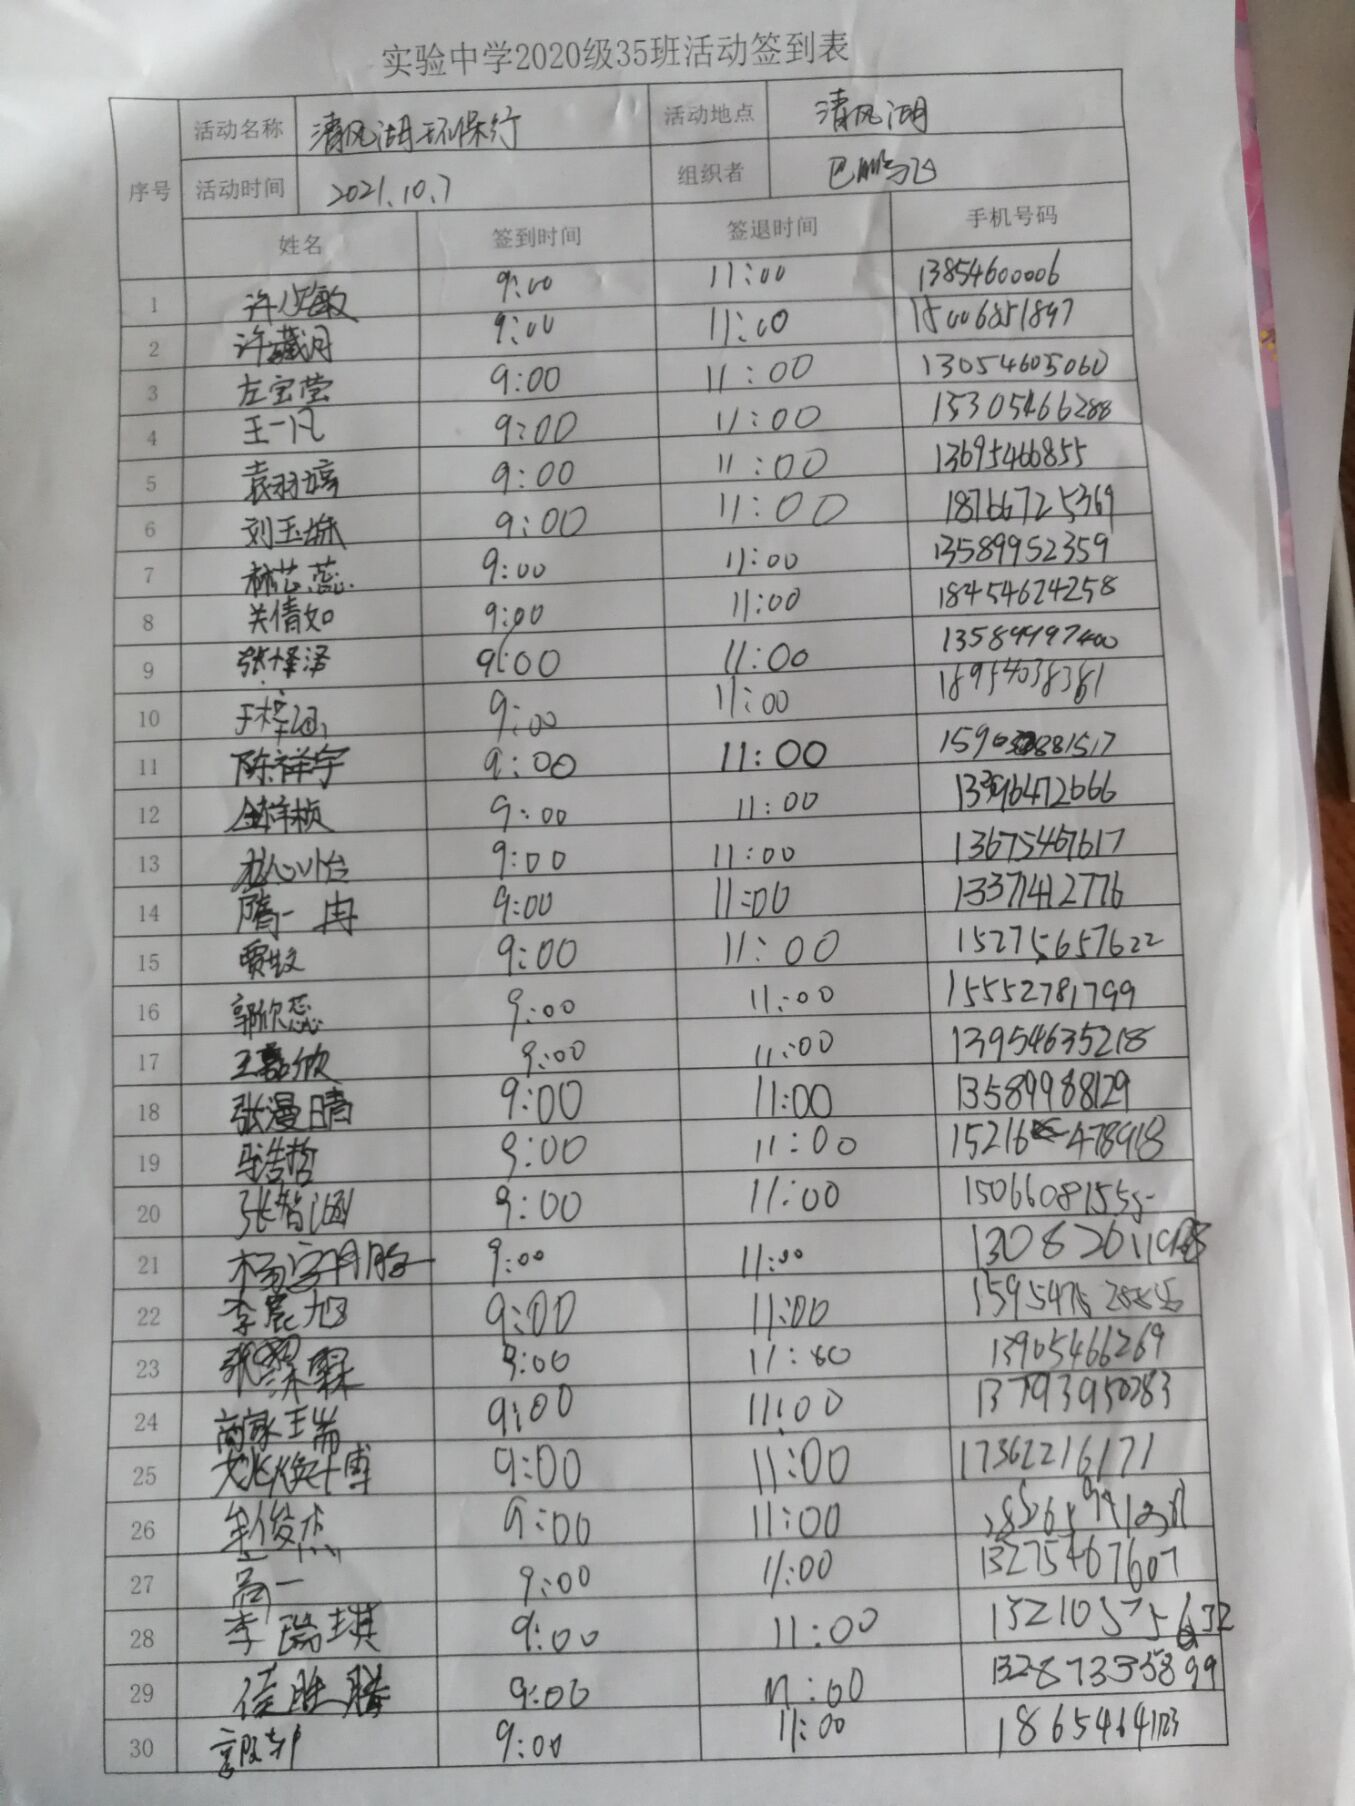 实验中学2020级35班活动签到表
活动名称 清风湖环保行 活动地点 清风湖
序号 活动时间 2021.10.7 组织者 巴鹏飞
姓名 签到时间 签退时间 手机号码
1 许 敏 9:00 11:00 13854600006
2 许 月 9:00 11:00 15006851897
3 左宝莹 9:00 11:00 13054605060
4 王一凡 9:00 11:00 15305466288
5 袁羽 9:00 11:00 13695466855
6 刘玉 9:00 11:00 18766725369
7 林芯蕊 9:00 11:00 13589952359
8 关倩如 9:00 11:00 18454624258
9 张 泽 9:00 11:00 13589997400
10 于梓涵 9:00 11:00 18954038381
11 陈祥宇 9:00 11:00
12 9:00 11:00
13 9:00 11:00 13675467617
14 隋一冉 9:00 11:00 13371412776
15 贾 9:00 11:00 15275657622
16 郭欣蕊 9:00 11:00 15552781799
17 王嘉欣 9:00 11:00 13954635218
18 张漫晴 9:00 11:00 13589988129
19 浩哲 9:00 11:00 15216 478918
20 张智涵 9:00 11:00 15066081555
21 杨 9:00 11:00
22 李宸旭 9:00 11:00
23 张 霖 9:00 11:00 13905466269
24 商家 9:00 11:00 13793950283
25 姚焕博 9:00 11:00 17362216171
26 俊杰 9:00 11:00
27 高一 9:00 11:00 13275467607
28 李瑞琪 9:00 11:00
29 侯胜腾 9:00 11:00
30 9:00 11:00